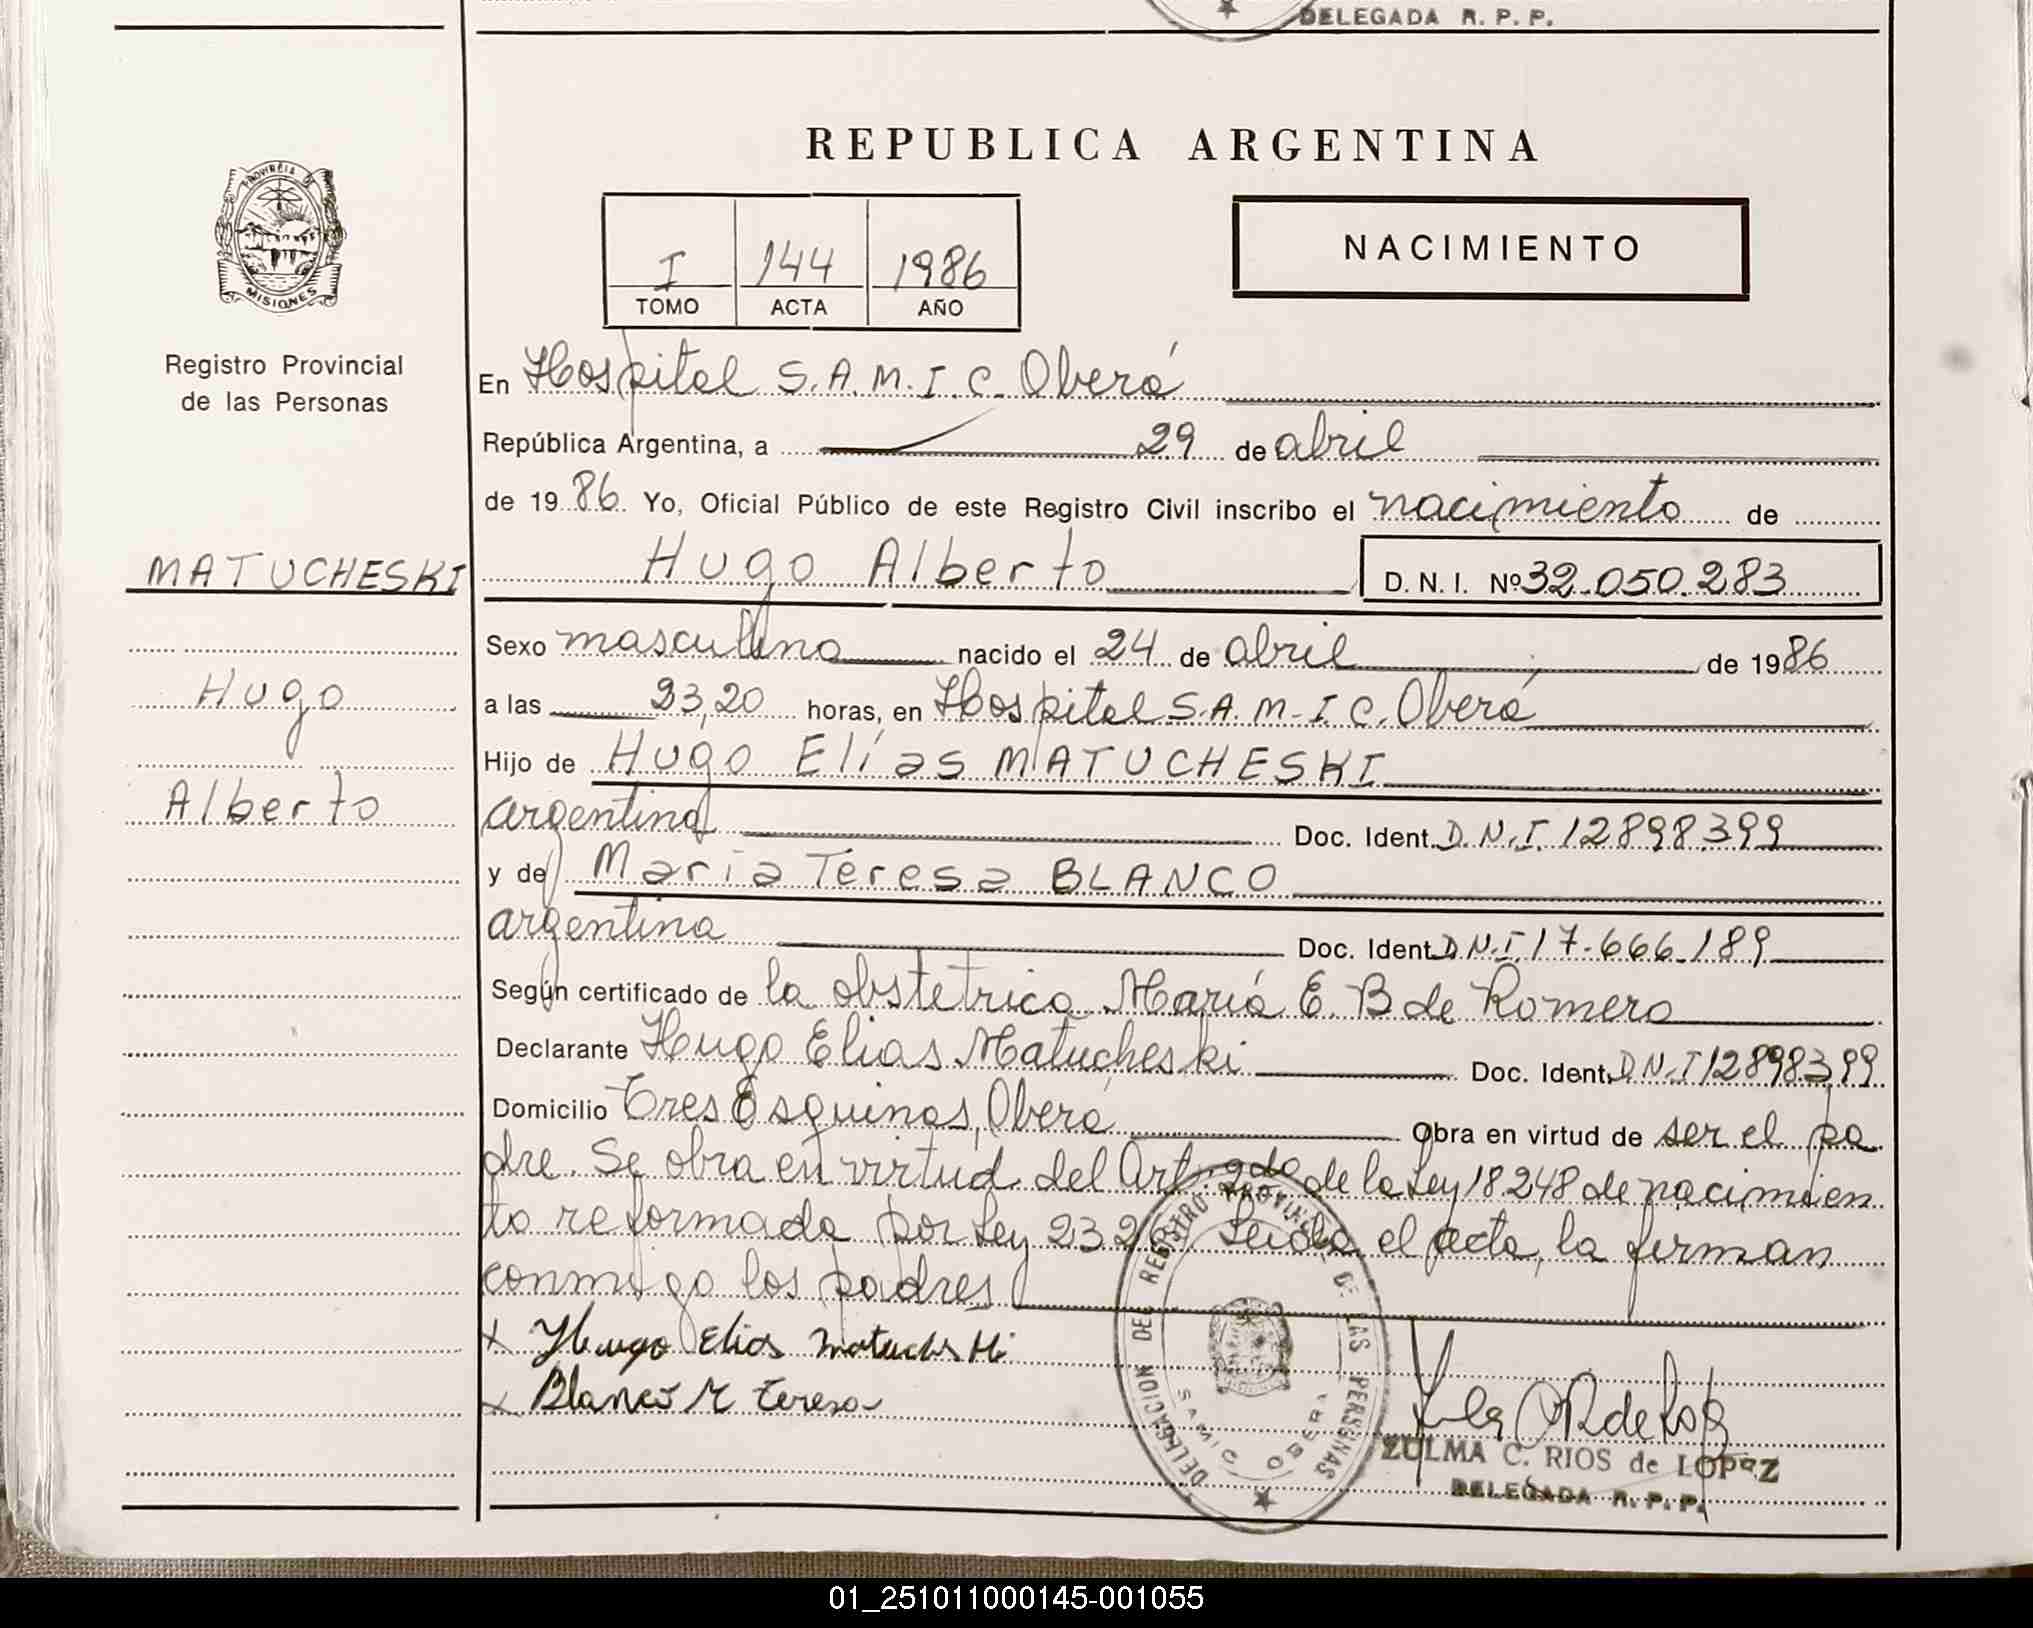 DELEGADA R. P. P.
REPUBLICA ARGENTINA
PROVINCIA DE
MISIONES
Registro Provincial
de las Personas
I 144 1986
TOMO ACTA AÑO
NACIMIENTO
En Hospital S.A.M.I.C. Oberá
República Argentina, a 29 de abril
de 1986. Yo, Oficial Público de este Registro Civil inscribo el nacimiento de
MATUCHESKI
Hugo Alberto D. N. I. Nº 32.050.283
Sexo masculino nacido el 24 de abril de 1986
Hugo
a las 23,20 horas, en Hospital S.A.M.I.C. Oberá
Hijo de Hugo Elías MATUCHESKI
Alberto
argentina Doc. Ident. D.N.I. 12898399
y de María Teresa BLANCO
argentina Doc. Ident. D.N.I. 17.666.189
Según certificado de la obstetrica María E. B de Romero
Declarante Hugo Elias Matucheski Doc. Ident. D.N.I 12898399
Domicilio Tres Esquinas, Oberá Obra en virtud de ser el pa
dre. Se obra en virtud del Art. 2do de la Ley 18248 de nacimien
to reformada por Ley 23. Leída el acta, la firman
conmigo los padres
x Hugo Elias
x Blanco M Teresa
DELEGACION DEL REGISTRO PROVINCIAL DE LAS PERSONAS
SAMIC OBERA
ZULMA C. RIOS de LOPEZ
DELEGADA R. P. P.
01_251011000145-001055